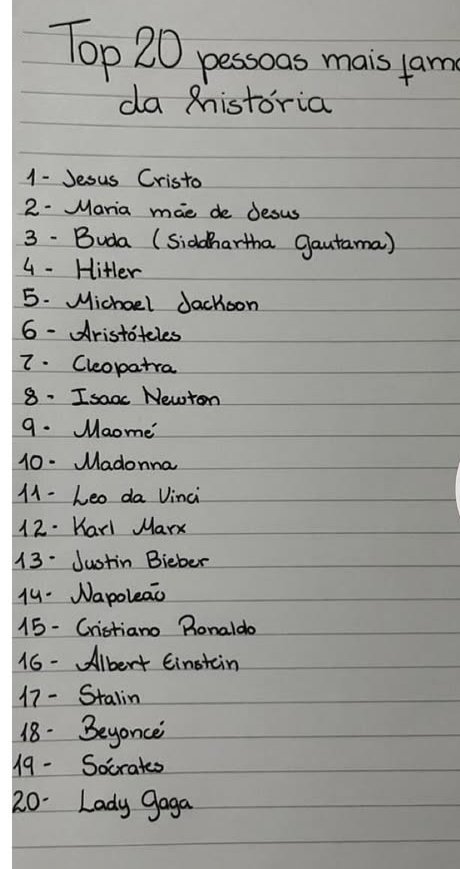 Top 20 pessoas mais famo
da história
1- Jesus Cristo
2- Maria mãe de Jesus
3 - Buda (Siddhartha Gautama)
4 - Hitler
5- Michael Jackson
6 - Aristóteles
7- Cleopatra
8- Isaac Newton
9- Maomé
10- Madonna
11- Leo da Vinci
12- Karl Marx
13- Justin Bieber
14- Napoleão
15- Cristiano Ronaldo
16- Albert Einstein
17- Stalin
18- Beyoncé
19- Sócrates
20- Lady Gaga